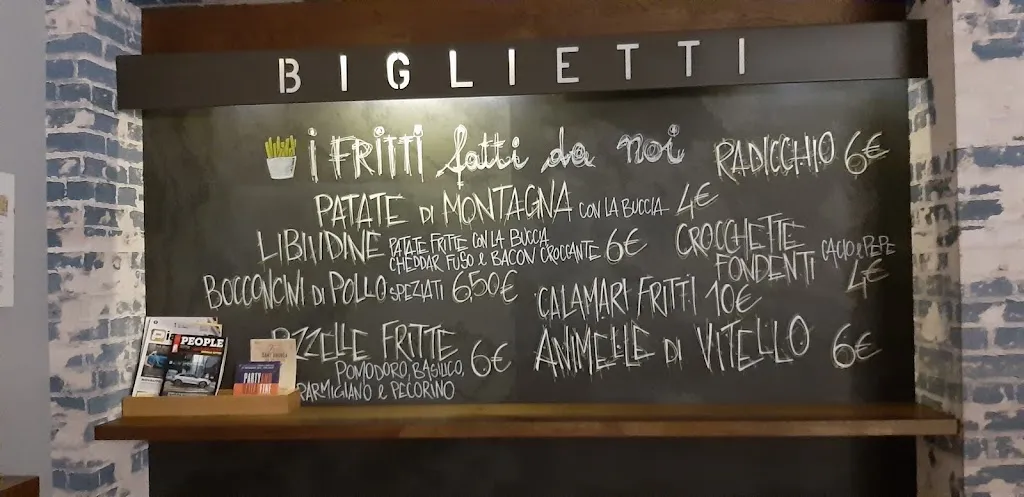 BIGLIETTI
I FRITTI fatti da noi
RADICCHIO 6€
PATATE DI MONTAGNA CON LA BUCCIA 4€
LIBIUDINE PATATE FRITTE CON LA BUCCIA
CHEDDAR FUSO e BACON CROCCANTE 6€
CROCCHETTE
FONDENTI CACIO e PEPE
4€
BOCCONCINI DI POLLO SPEZIATI 6,50€
CALAMARI FRITTI 10€
ZZELLE FRITTE
POMODORO, BASILICO, 6€
PARMIGIANO e PECORINO
ANIMELLE DI VITELLO 6€
PEOPLE
PARTY